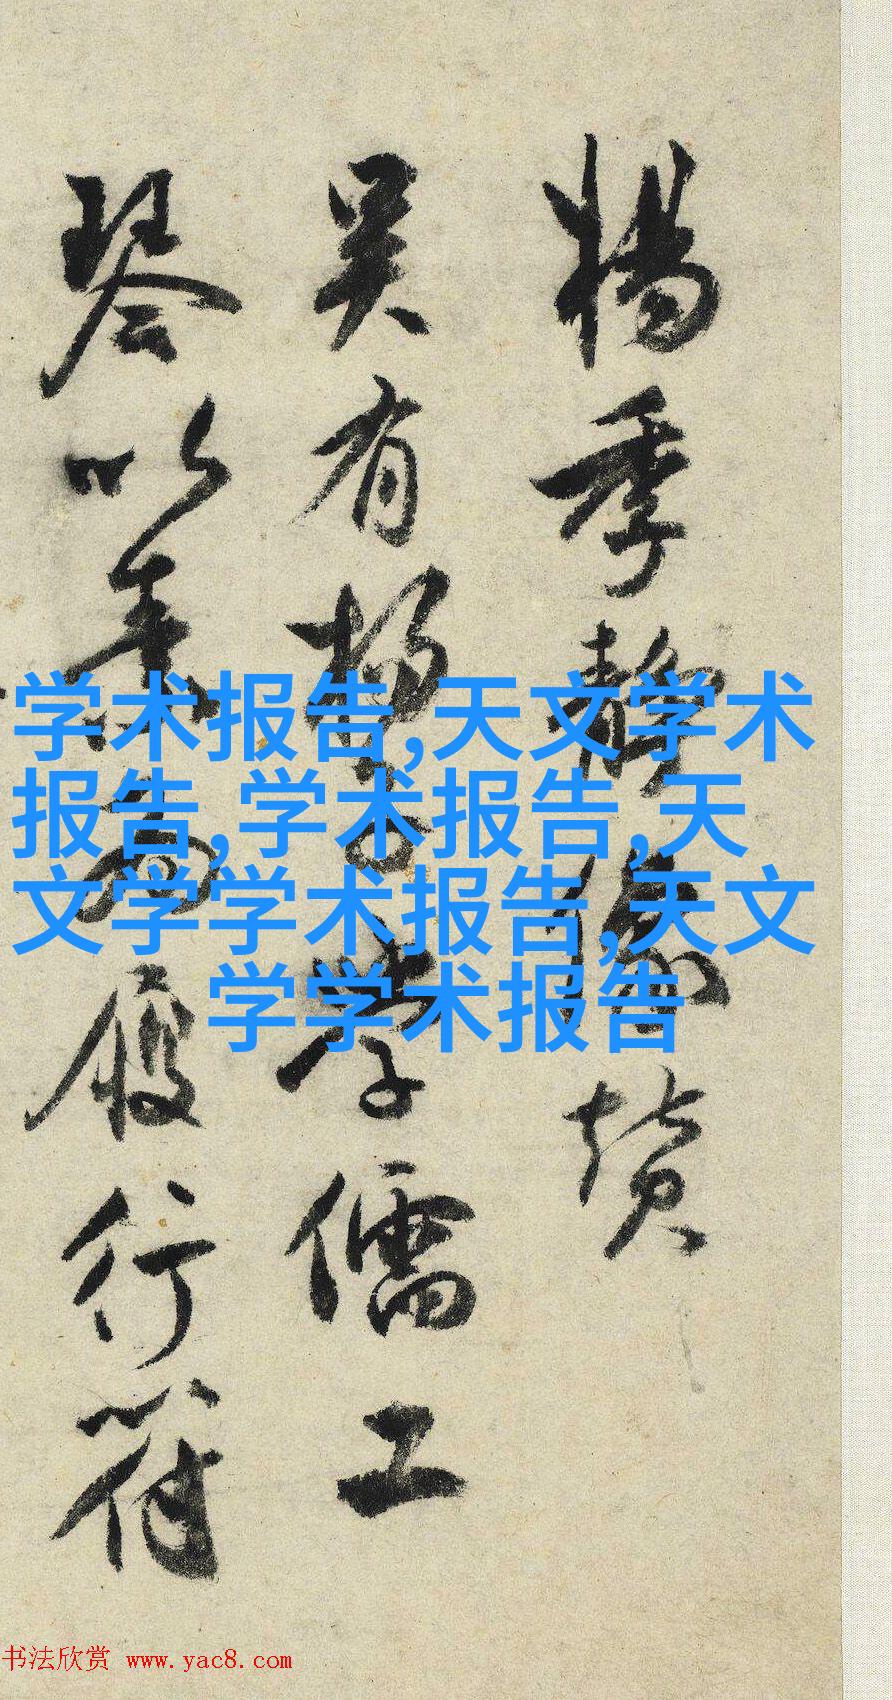 楊季静像贊
吴有楊子學儒工
琴以義為履行符
学术报告,天文学术
报告,学术报告,天
文学学术报告,天文
学学术报告
书法欣赏 www.yac8.com